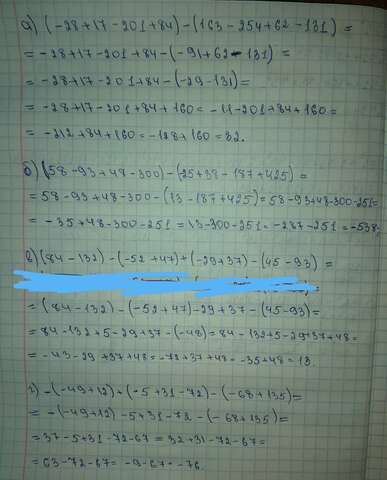 а) (-28+17-201+84)-(163-254+62-131)=
=-28+17-201+84-(-91+62-131)=
=-28+17-201+84-(-29-131)=
=-28+17-201+84+160=-11-201+84+160=
=-212+84+160=-128+160=32.
б) (58-93+48-300)-(25+38-187+425)=
=58-93+48-300-(13-187+425)=58-93+48-300-251=
=-35+48-300-251=13-300-251=-287-251=-538.
в) (84-132)-(-52+47)+(-29+37)-(45-93)=
=(84-132)-(-52+47)-29+37-(45-93)=
=84-132+5-29+37-(-48)=84-132+5-29+37+48=
=-43-29+37+48=-72+37+48=-35+48=13.
г) -(-49+12)+(-5+31-72)-(-68+135)=
=-(-49+12)-5+31-72-(-68+135)=
=37-5+31-72-67=32+31-72-67=
=63-72-67=-9-67=-76.